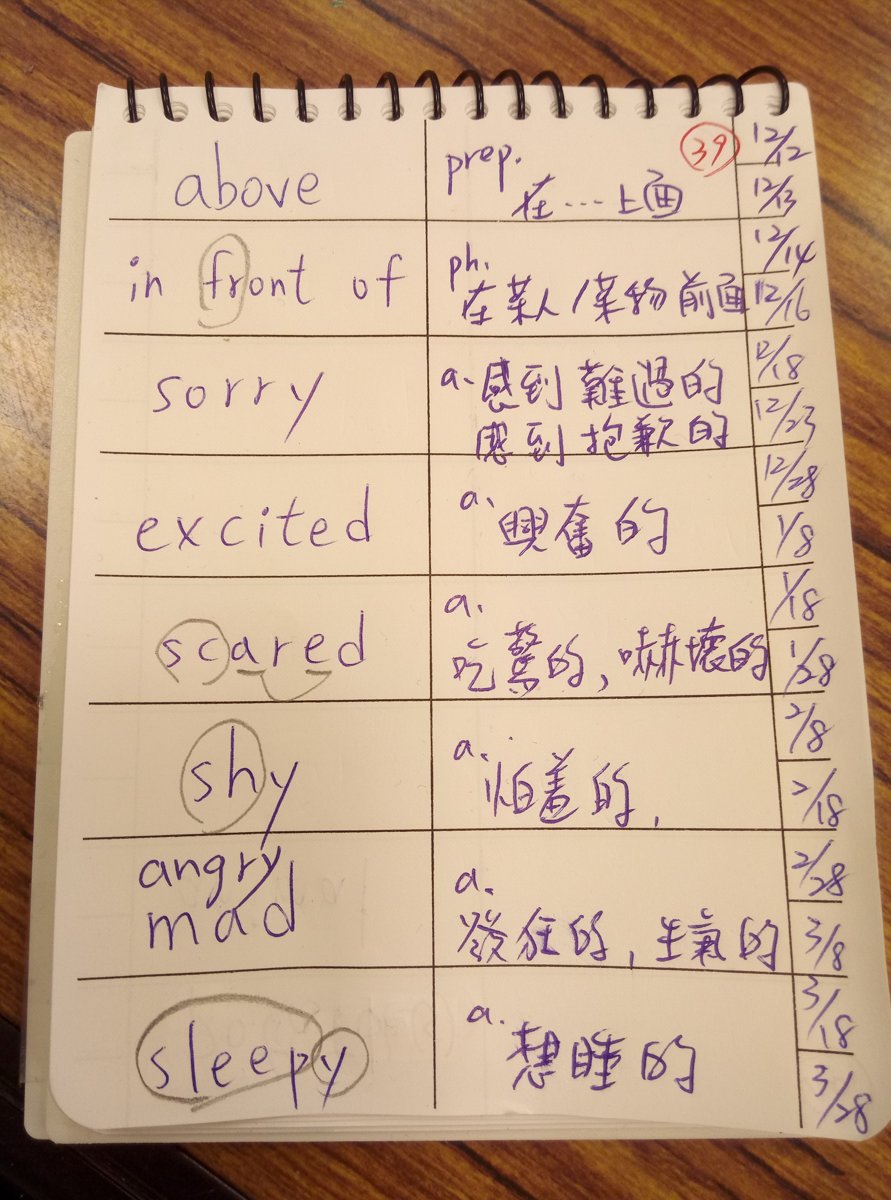 above
prep.
39
在…上面
in front of
ph.
在某人/某物前面
sorry
a. 感到難過的
感到抱歉的
excited
a. 興奮的
scared
a.
吃驚的,嚇壞的
shy
a.
怕羞的,
angry
mad
a.
發狂的,生氣的
sleepy
a.
想睡的
12/12
12/13
12/14
12/16
12/18
12/23
12/28
1/8
1/18
1/28
2/8
2/18
2/28
3/8
3/18
3/28